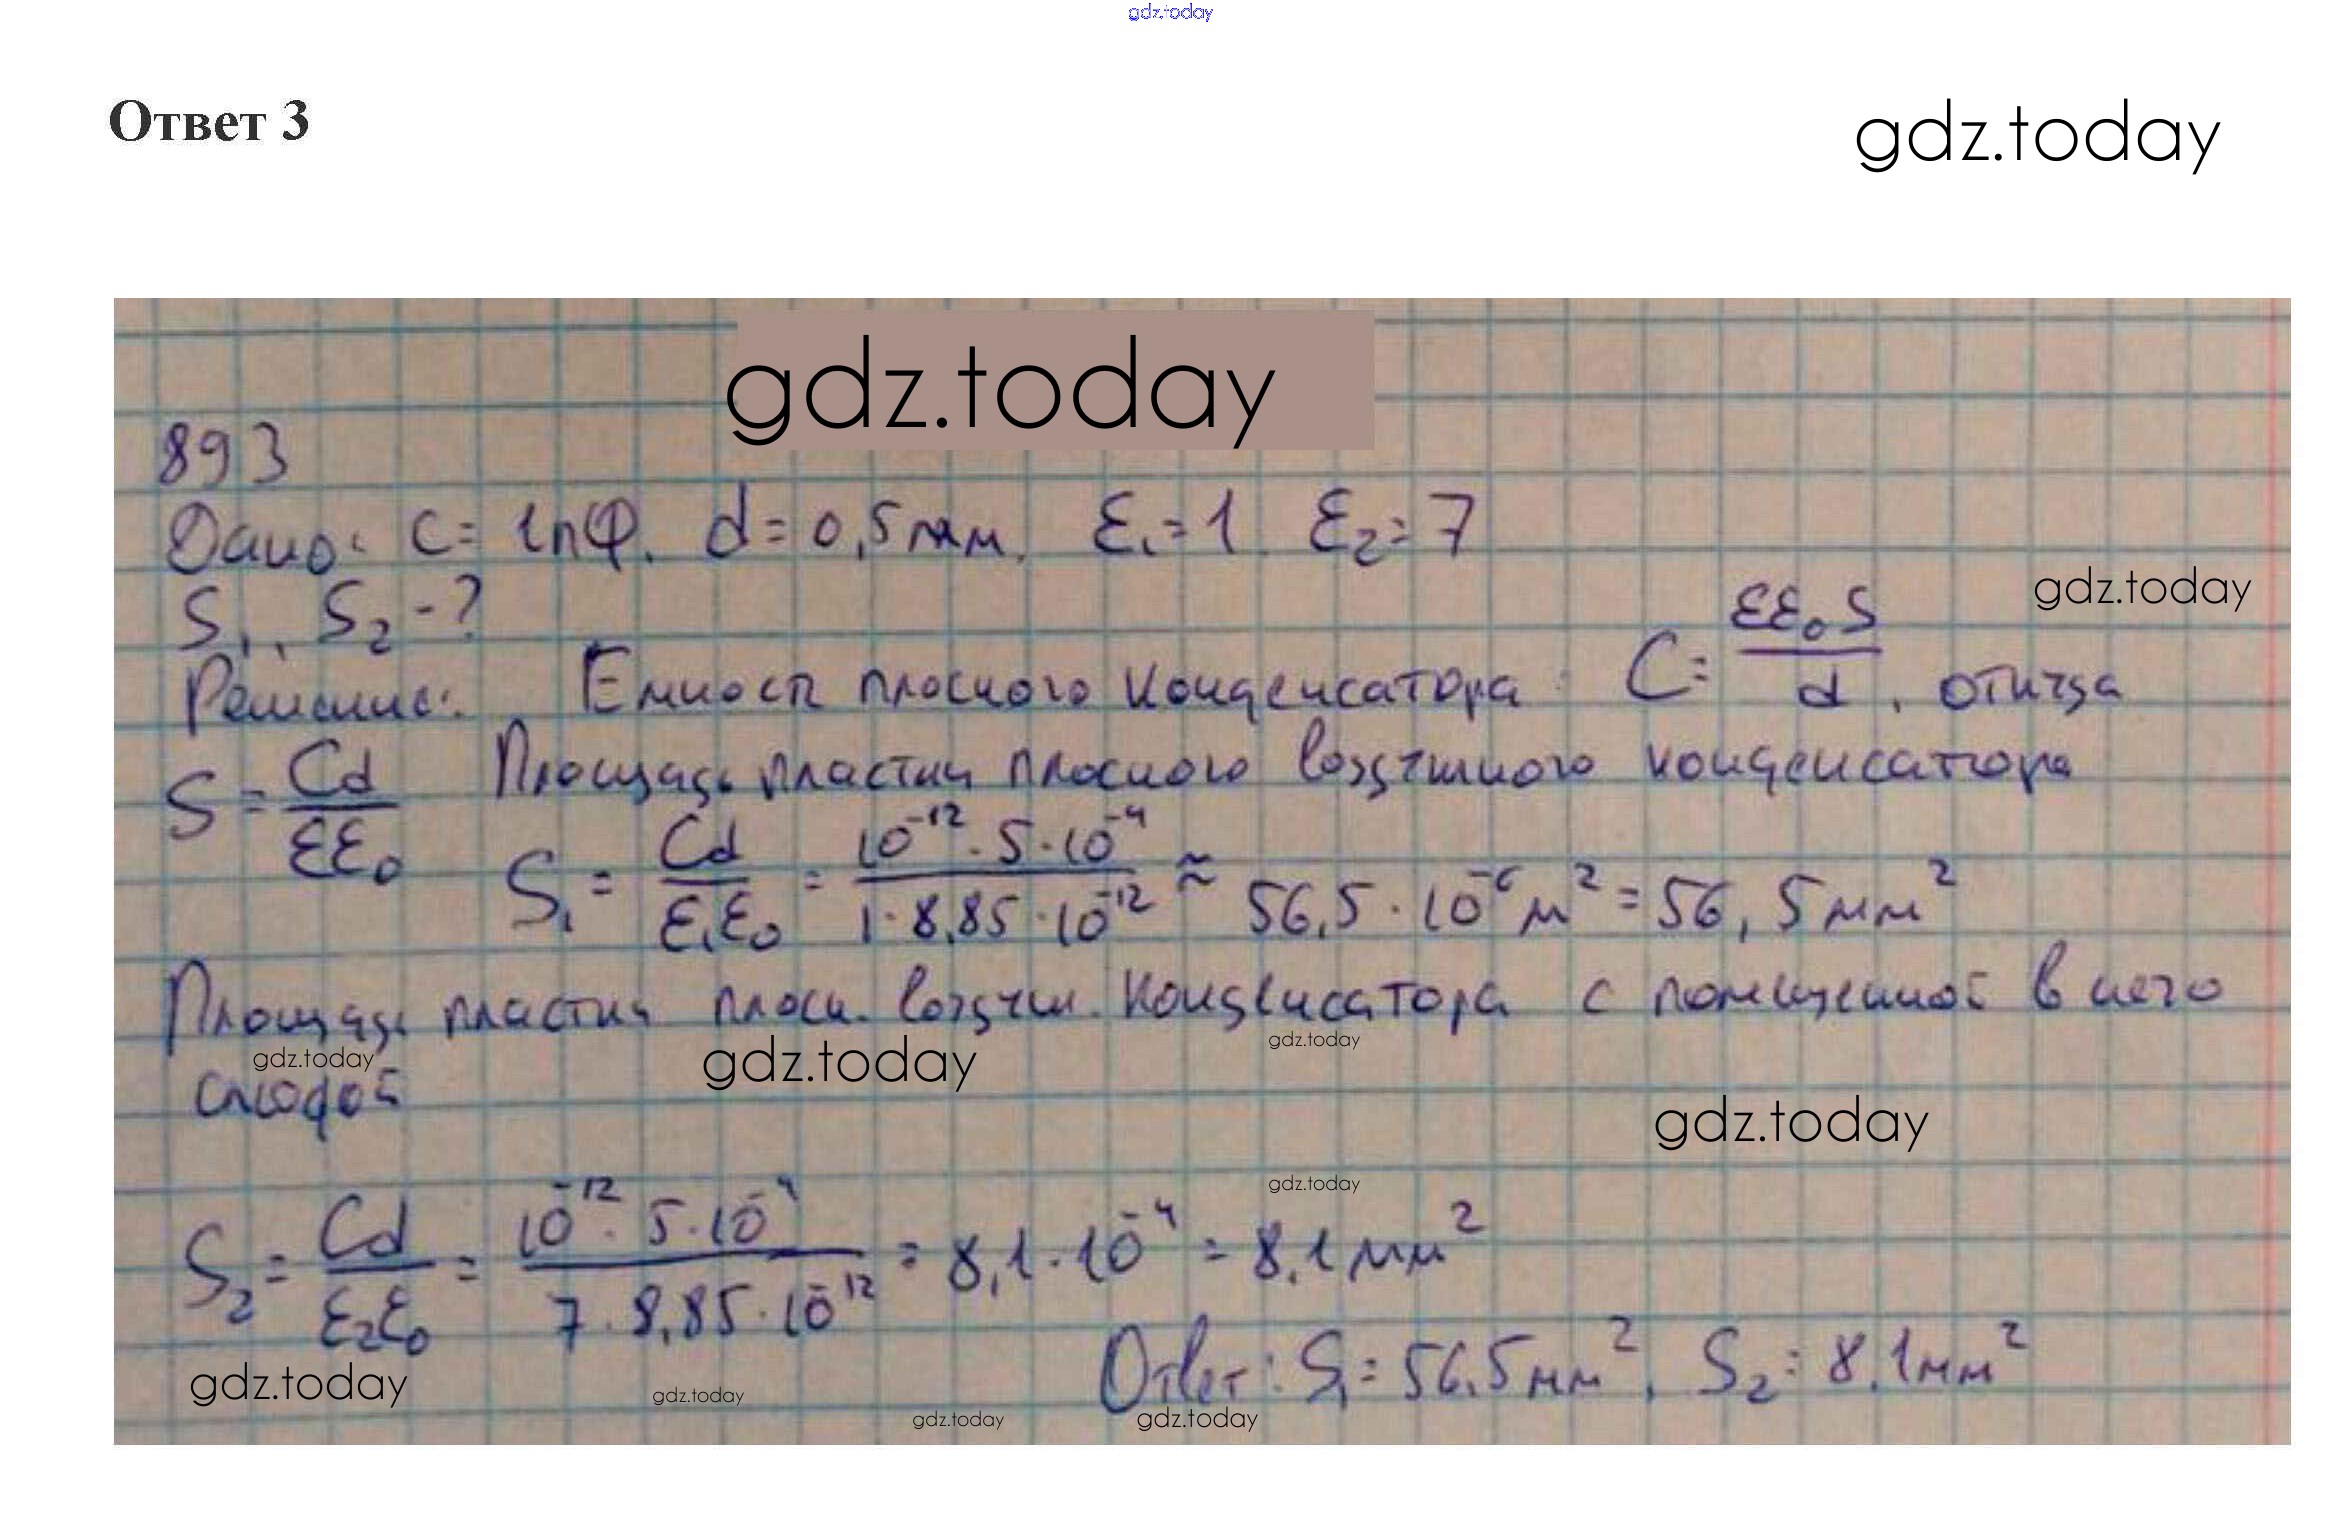 gdz.today
Ответ 3
gdz.today
gdz.today
893
Дано: C = 1пФ. d = 0,5мм, ε₁ = 1 ε₂ = 7
gdz.today
S₁, S₂ - ?
Решение: Емкость плоского конденсатора: C = εε₀S/d, откуда
S = Cd/εε₀ Площадь пластин плоского воздушного конденсатора
S₁ = Cd/ε₁ε₀ = 10⁻¹²·5·10⁻⁴/1·8,85·10⁻¹² ≈ 56,5·10⁻⁶м² = 56,5мм²
Площадь пластин плоск. воздушн. конденсатора с помещенной в него
gdz.today gdz.today gdz.today
слюдой
gdz.today
gdz.today
S₂ = Cd/ε₂ε₀ = 10⁻¹²·5·10⁻⁴/7·8,85·10⁻¹² = 8,1·10⁻⁴ = 8,1мм²
Ответ: S₁ = 56,5мм², S₂ = 8,1мм²
gdz.today gdz.today gdz.today gdz.today